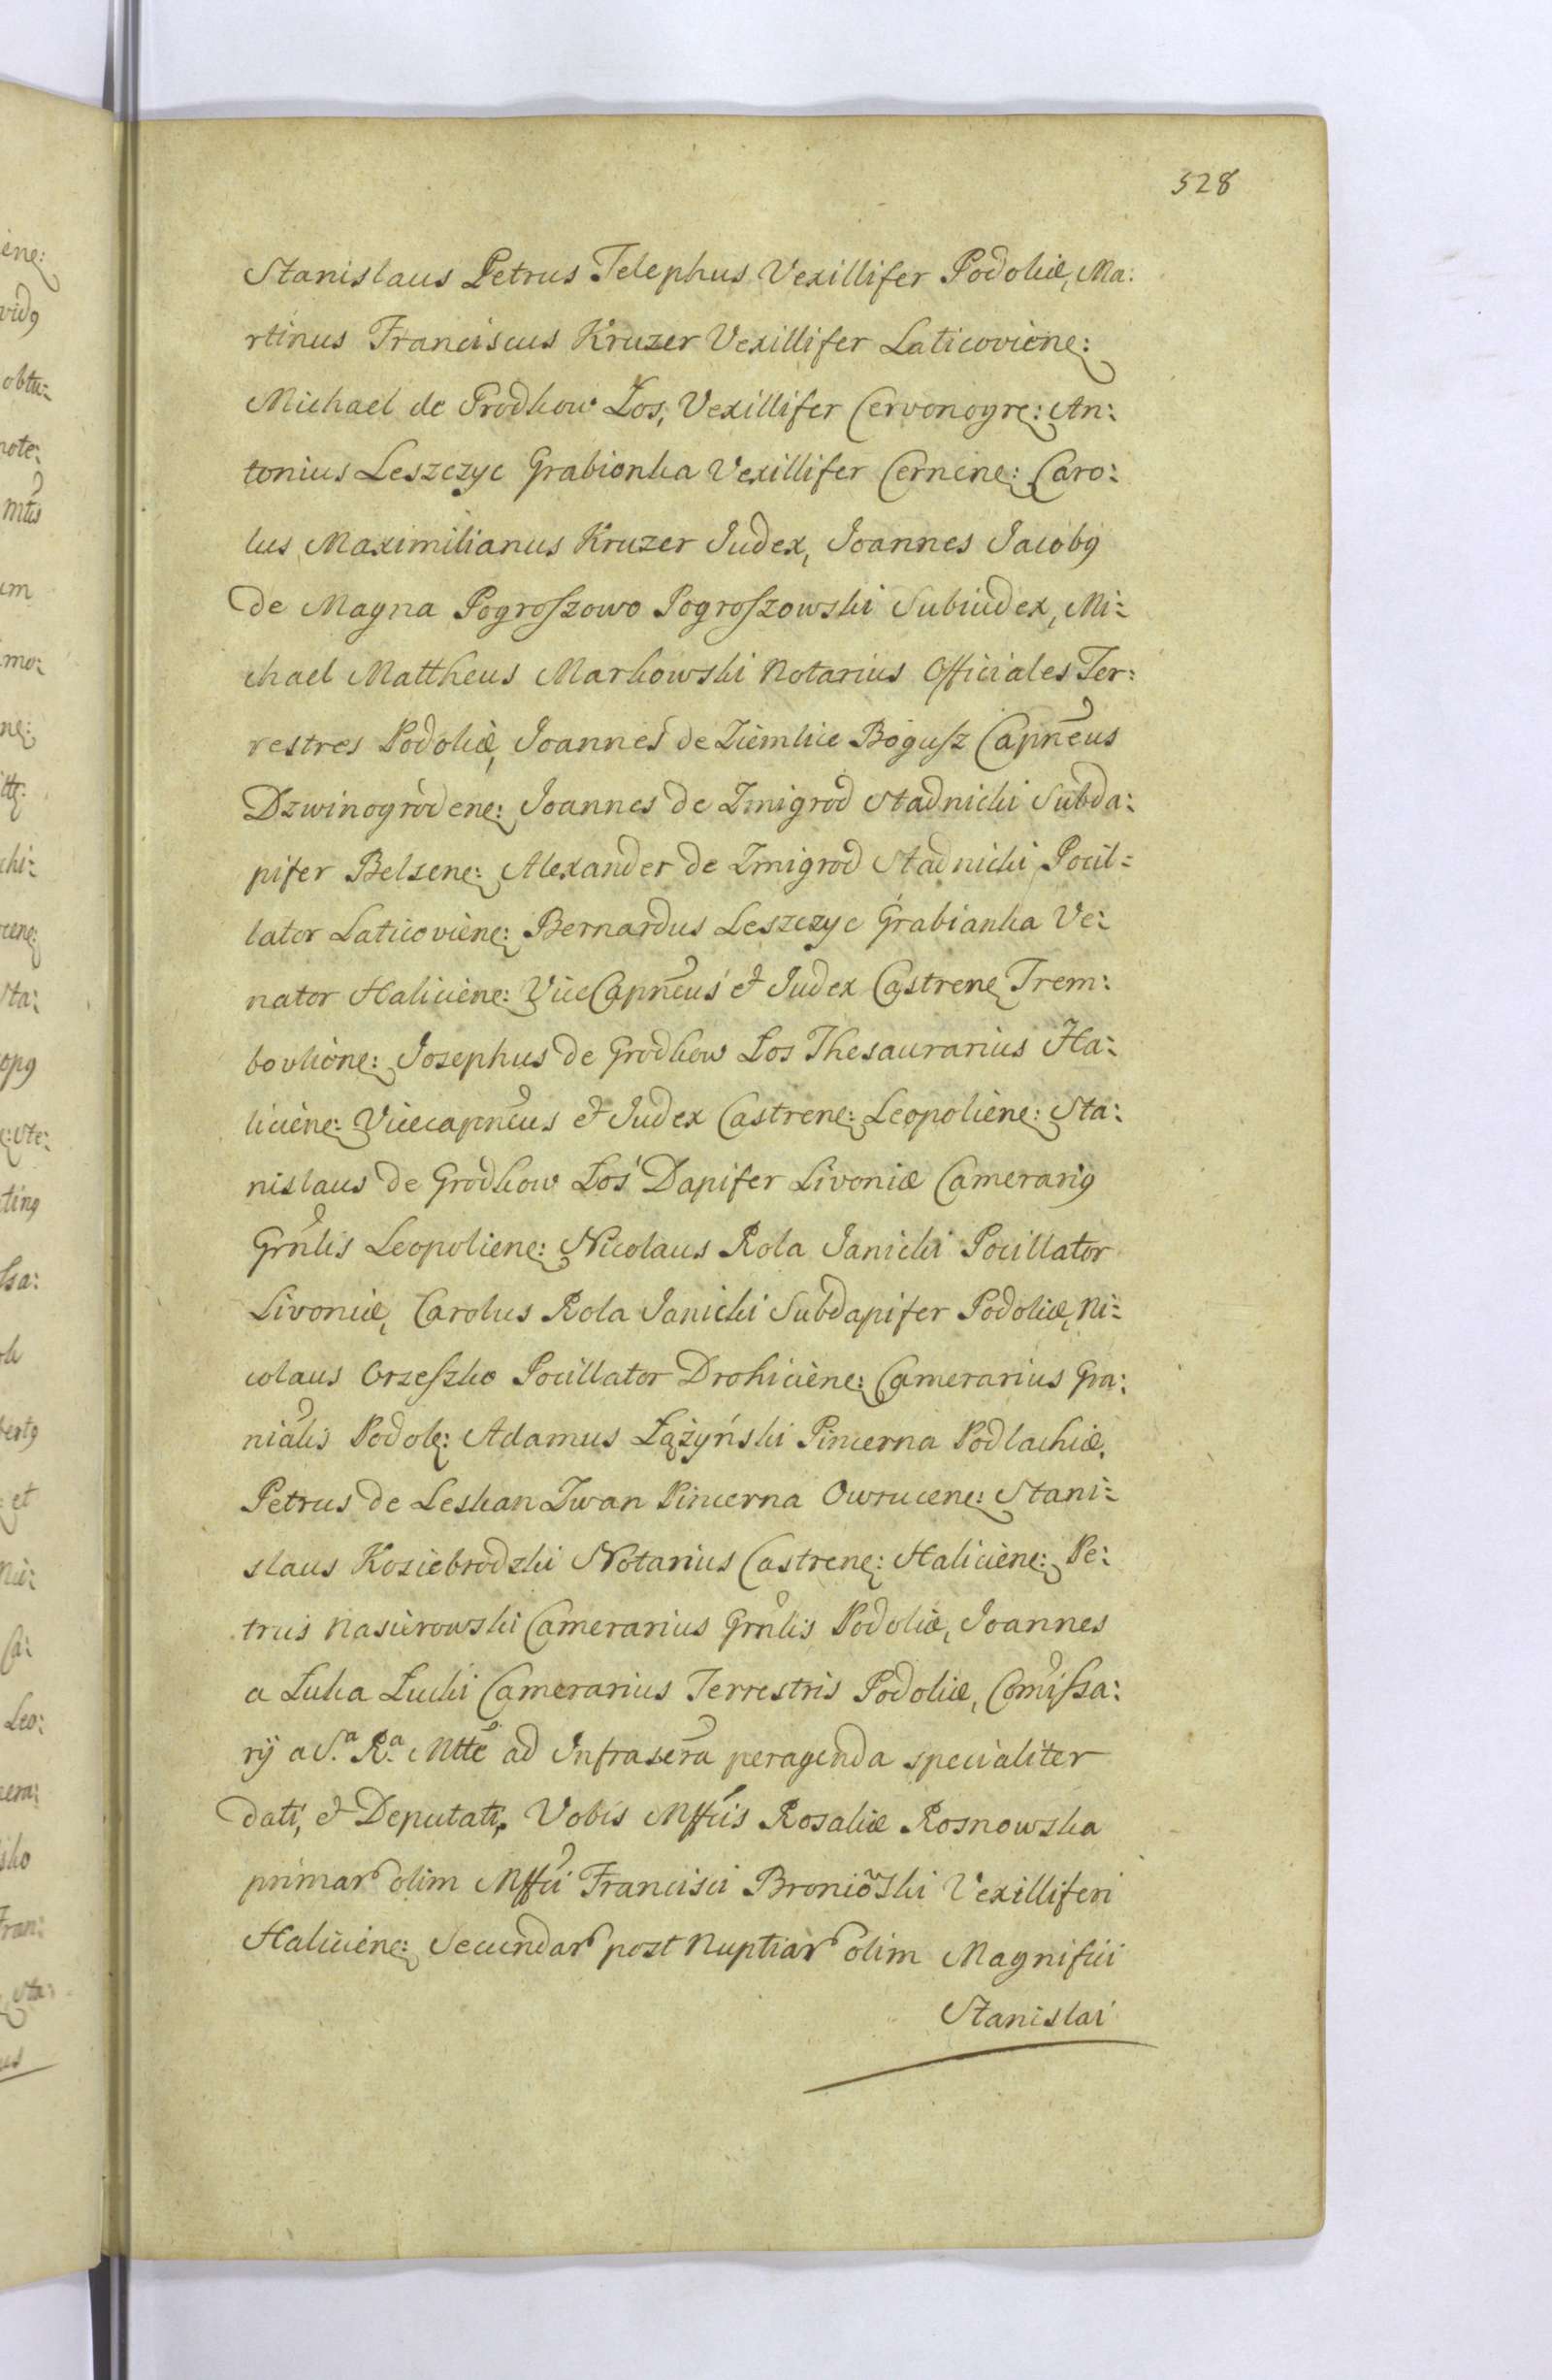 528
Stanislaus Petrus Telephus Vexillifer Podoliæ, Ma:
rtinus Franciscus Kruzer Vexillifer Laticoviene:
Michael de Grodkow Łos, Vexillifer Cervonogre: An:
tonius Leszczyc Grabionka Vexillifer Cernene: Caro:
lus Maximilianus Kruzer Judex, Joannes Jacobꝯ
de Magna Pogroſzowo Pogroſzowski Subiudex, Mi:
chael Mattheus Markowski Notarius Officiales Ter:
restres Podoliæ, Joannes de Ziemlice Boguſz Capneus
Dzwinogródene: Joannes de Zmigrod Stadnicki Subda:
pifer Belzene: Alexander de Zmigrod Stadnicki Pocil:
lator Laticoviene: Bernardus Leszczyc Grabianka Ve:
nator Haliciene: ViceCapneus et Judex Castrene Trem:
bovliene: Josephus de Grodkow Łos Thesaurarius Ha:
liciene: Vicecapneus et Judex Castrene: Leopoliene: Sta:
nislaus de Grodkow Łoś Dapifer Livoniæ Camerariꝯ
Grnlis Leopoliene: Nicolaus Rola Janicki Pocillator
Livoniæ, Carolus Rola Janicki Subdapifer Podoliæ, Ni:
colaus Orzeſzko Pocillator Drohiciene: Camerarius Gra:
nialis Podole: Adamus Łążyński Pincerna Podlachiæ,
Petrus de Leskan Zwan Pincerna Owrucene: Stani:
slaus Koziebrodzki Notarius Castrene: Haliciene: Pe:
trus Nasierowski Camerarius Grnlis Podoliæ, Joannes
a Łuka Łucki Camerarius Terrestris Podoliæ, Comiſsa:
rij a S.ª R.ª Mtte ad Infrascra peragenda specialiter
dati, et Deputati, Vobis Mffcis Rosaliæ Rosnowska
primar olim Mffci Francisci Bronioski Vexilliferi
Haliciene: Secundar post Nuptiar olim Magnifici
Stanislai